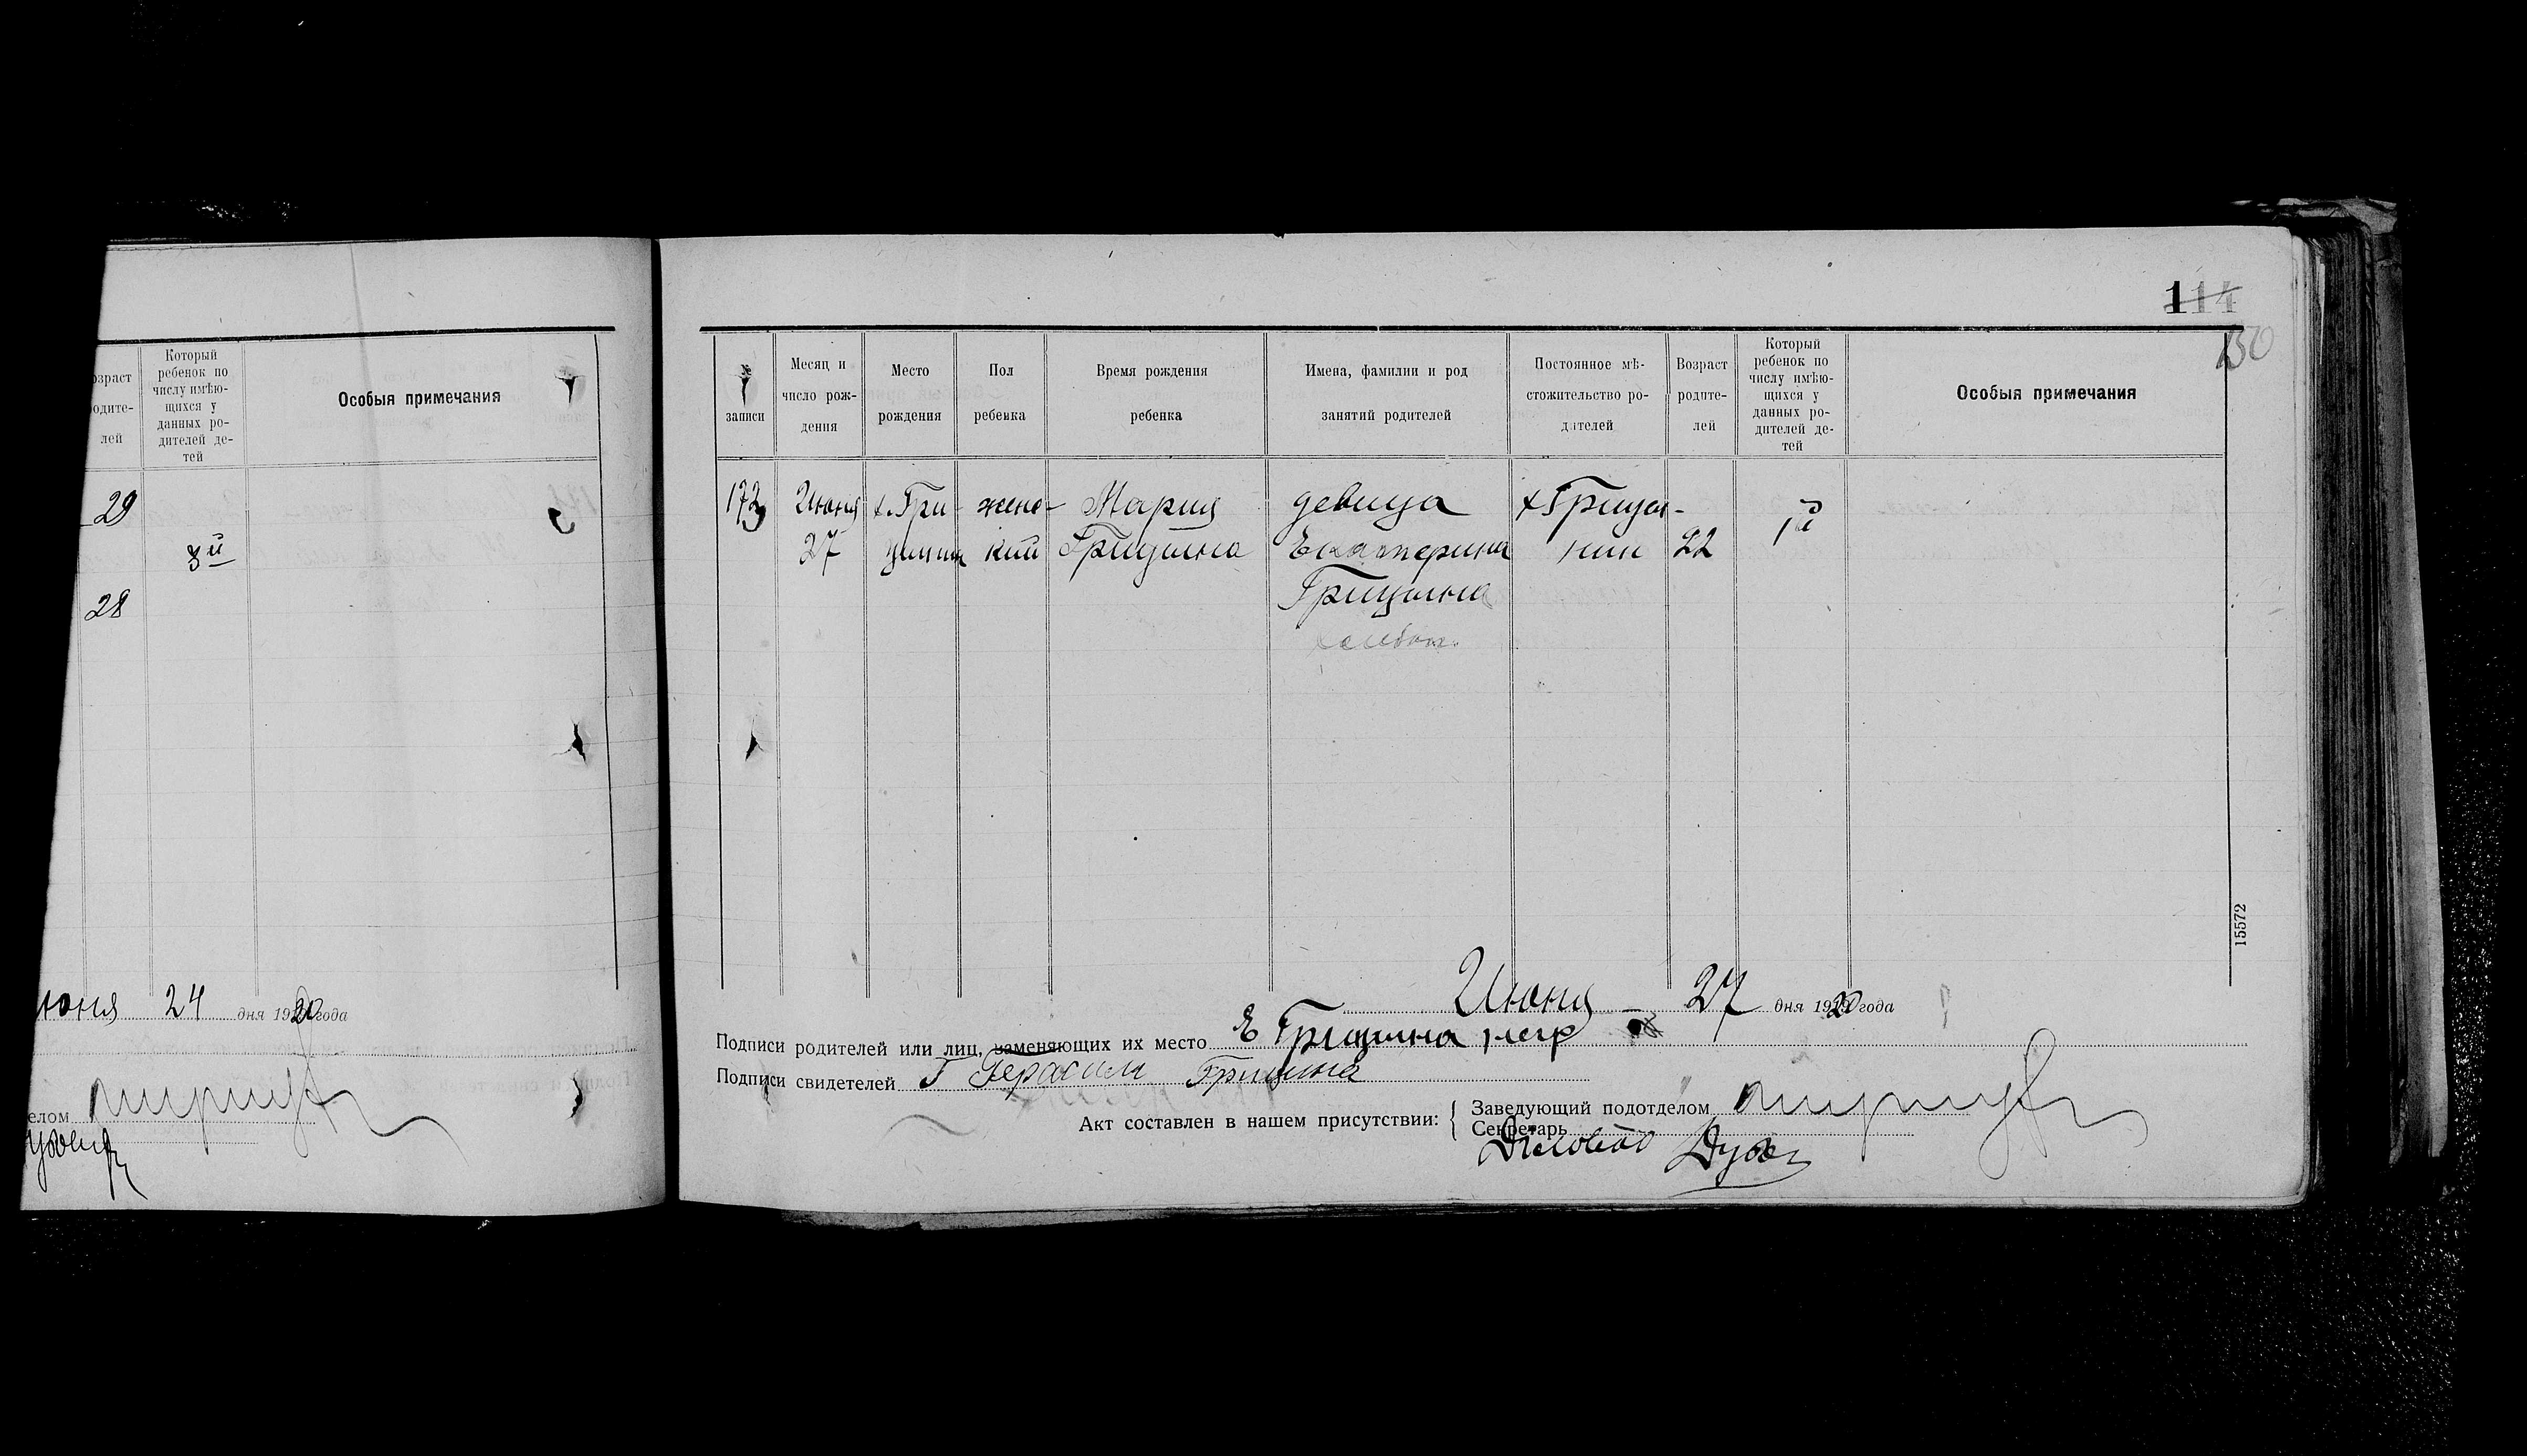 114
130
Возраст родителей
Который ребенок по числу имѣющихся у данных родителей детей
Особыя примечания
29
3й
28
июня 24 дня 1920 года
елом
№ записи
Месяц и число рождения
Место рождения
Пол ребенка
Время рождения ребенка
Имена, фамилии и род занятий родителей
Постоянное мѣстожительство родителей
Возраст родителей
Который ребенок по числу имѣющихся у данных родителей детей
Особыя примечания
173 Июня х. Гри- женс- Мария девица х Грицы- 1й
27 кий Грицына Екатерина нин 22
Грицына
15572
Июня 27 дня 1920 года
Подписи родителей или лиц, заменяющих их место Е Грицина негр
Подписи свидетелей Г Герасим Грицина
Акт составлен в нашем присутствии:
Заведующий подотделом
Секретарь
Деловод